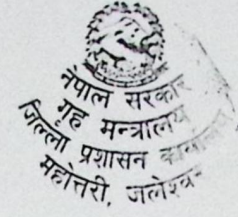 नेपाल सरकार
गृह मन्त्रालय
जिल्ला प्रशासन कार्यालय
महोत्तरी, जलेश्वर